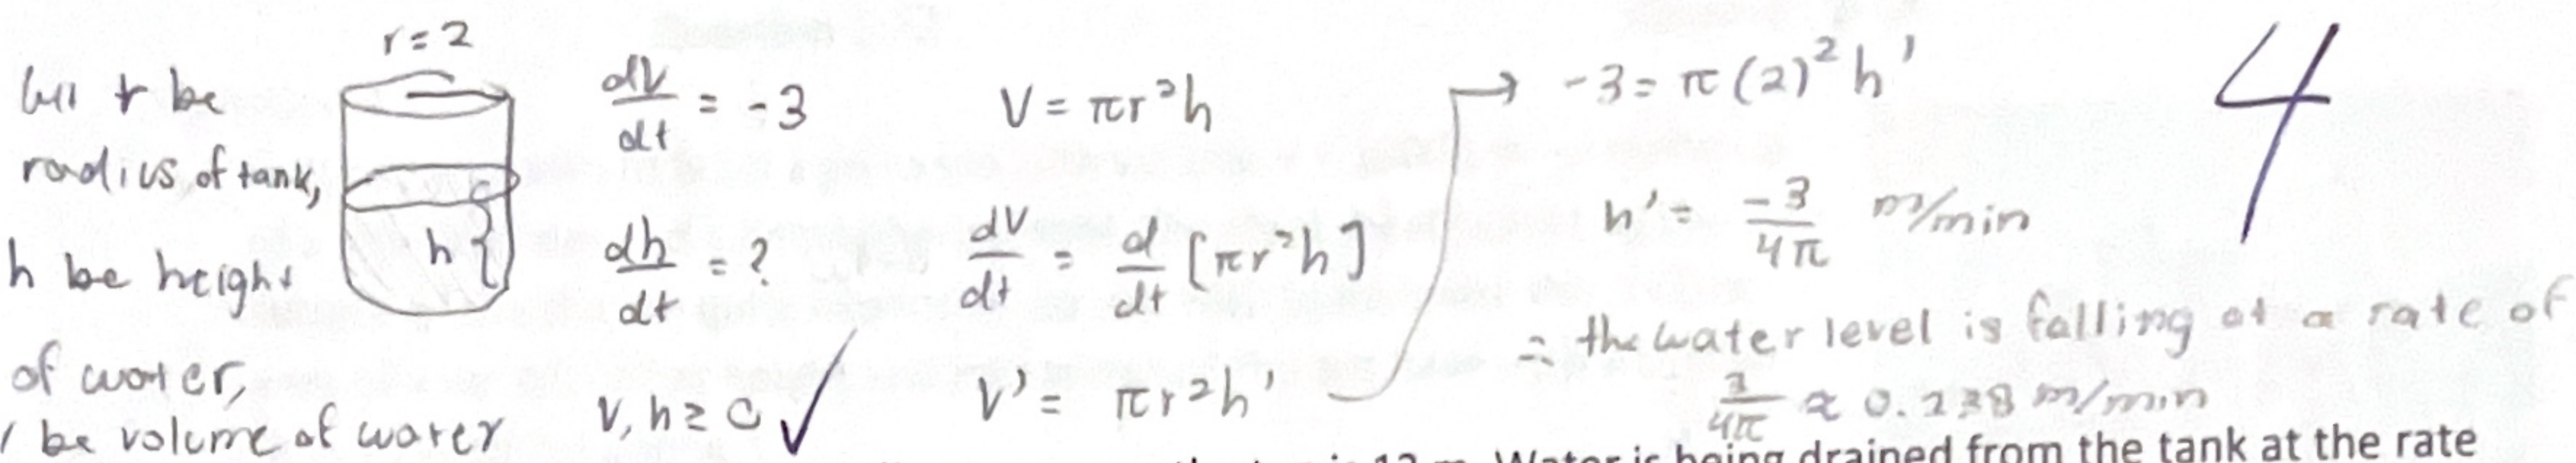 r = 2
r be
radius of tank,
h be height
of water,
be volume of water
h
dV/dt = -3
dh/dt = ?
V, h ≥ 0 ✓
V = πr²h
dV/dt = d/dt [πr²h]
V' = πr²h'
→ -3 = π(2)²h'
h' = -3/4π m/min
∴ the water level is falling at a rate of
3/4π ≈ 0.238 m/min
4
12 m. Water is being drained from the tank at the rate